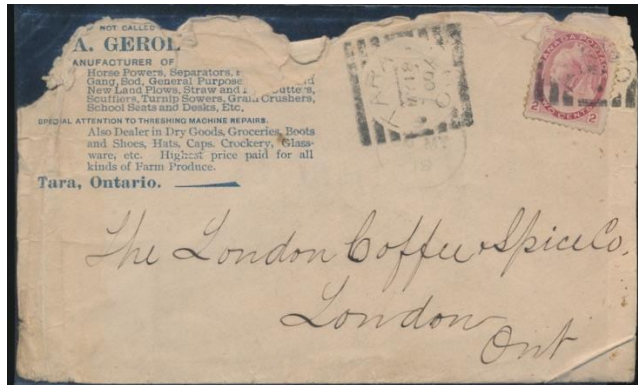 NOT CALLED
A. GEROL
ANUFACTURER OF
Horse Powers, Separators,
Gang, Sod, General Purpose and
New Land Plows, Straw and utters,
Scufflers, Turnip Sowers, Grain Crushers,
School Seats and Desks, Etc,
SPECIAL ATTENTION TO THRESHING MACHINE REPAIRS.
Also Dealer in Dry Goods, Groceries, Boots
and Shoes, Hats, Caps. Crockery, Glass-
ware, etc. Highest price paid for all
kinds of Farm Produce.
Tara, Ontario.
TARA
MY 19
ONT
CANADA POSTAGE
2 TWO CENTS 2
The London Coffee & Spice Co.
London
Ont